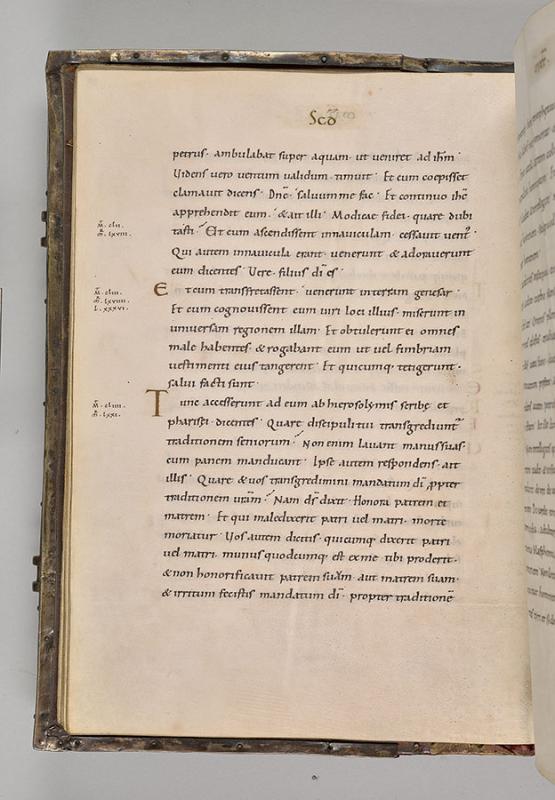 Scd̄
petrus· ambulabat super aquam· ut veniret ad ihm̄·
Videns vero ventum validum· timuit· Et cum coepisset
clamavit dicens· Dnē· salvum me fac· Et continuo ihē
apprehendit eum· & ait illi· Modicae fidei· quare dubi
tasti· Et cum ascendissent innaviculam· cessavit vent᾿
Qui autem innavicula erant· venerunt & adoraverunt
eum dicentes· Vere· filius dī es·
m̄· cliii·
m̄r· lxviiii·
i· lxxxvi·
Et cum transfretassent· venerunt interram genesar·
Et cum cognovissent eum viri loci illius· miserunt in
universam regionem illam· Et obtulerunt ei omnes
male habentes· & rogabant eum ut vel fimbriam
vestimenti eius tangerent· Et quicumq; tetigerunt·
salvi facti sunt·
Tunc accesserunt ad eum ab hierosolymis scribe et
pharisei· dicentes· Quare discipuli tui transgrediunt᾿
traditionem seniorum· Non enim lavant manus suas·
cum panem manducant· Ipse autem respondens· ait
illis· Quare & vos transgredimini mandatum dī ꝓpter
traditionem vrām· Nam ds̄ dixit· Honora patrem et
matrem· Et qui maledixerit patri vel matri· morte
moriatur· Vos autem dicitis· quicumq; dixerit patri
vel matri· munus quodcumq; est ex me tibi proderit·
& non honorificavit patrem suum· aut matrem suam·
& irritum fecistis mandatum dī· propter traditionē